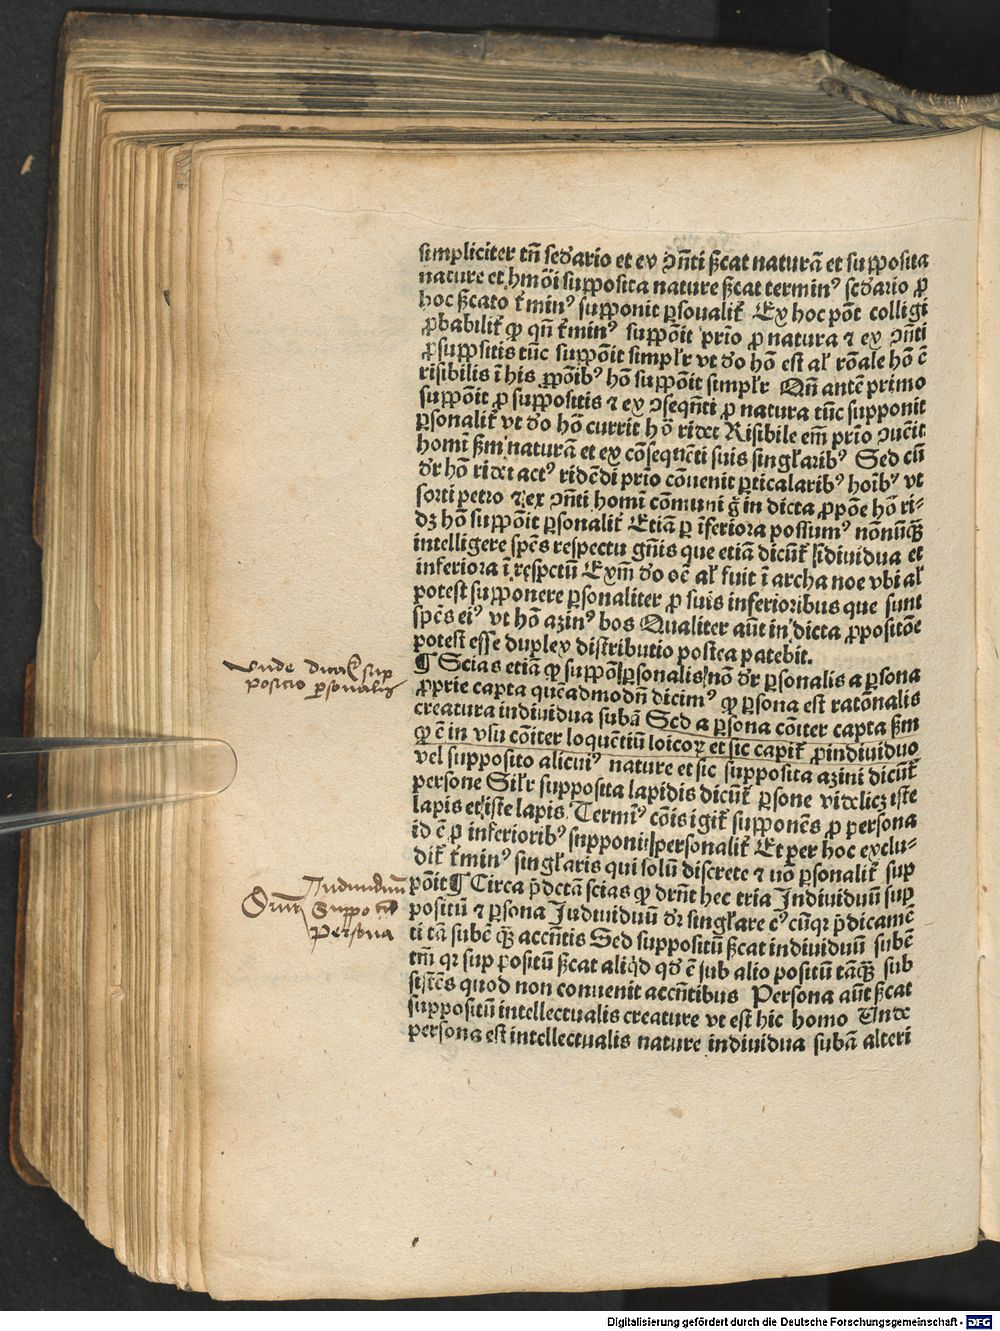 simpliciter tn̄ secᵈario et ex ↄn̄ti sꝫcat naturā et supposita
nature et hmōi supposita nature sꝫcat terminꝰ secᵈario ꝓ
hoc sꝫcato t̄minꝰ supponit ꝑsonalit̄ Ex hoc pōt colligi
ꝓbabilit̄ ꝙ qn̄ t̄minꝰ suppōit prīo ꝓ natura ⁊ ex ↄn̄ti
ꝓ suppositis tūc suppōit simplr̄ vt dᵒo hō est al̄ rōale hō ē
risibilis ī his ꝓpōibꝰ hō suppōit simplr̄ Qn̄ autē primo
suppōit ꝓ suppositis ⁊ ex ↄseqn̄ti ꝓ natura tūc supponit
ꝑsonalit̄ vt dᵒo hō currit hō ridet Risibile em̄ prīo ↄuēit
homī sꝫm naturā et ex cōsequēti suis singl̄aribꝰ Sed cū
dᵒr hō ridet actꝰ ridēdi prīo cōuenit ꝑticularibꝰ hoībꝰ vt
sorti petro ⁊ ex ↄn̄ti homī cōmuni gͦ in dicta ꝓpōe hō ri-
dꝫ hō suppōit ꝑsonalit̄ Etiā ꝑ īferiora possumꝰ nōnūꝗ̄
intelligere spēs respectu gn̄is que etiā dicūt̄ īdiuidua et
inferiora ī respctū Exm̄ dᵒo oē al̄ fuit ī archa noe vbi al̄
potest supponere ꝑsonaliter ꝓ suis inferioribus que sunt
spēs eiꝰ vt hō azinꝰ bos Qualiter aūt in dicta ꝓpositōe
potest esse duplex distributio postea patebit.
¶ Scias etiā ꝙ suppō ꝑsonalis nō dᵒr ꝑsonalis a ꝑsona
ꝓprie capta quēadmodū dicimꝰ ꝙ ꝑsona est ratōnalis
creatura indiuidua subā Sed a ꝑsona cōiter capta sꝫm
ꝙ ē in vsu cōiter loquētiū loicoꝝ et sic capit̄ ꝓ indiuiduo
vel supposito alicuiꝰ nature et sic supposita azini dicūt̄
persone Silr̄ supposita lapidis dicūt̄ ꝑsone videlicꝫ iste
lapis et iste lapis Terminꝰ cōis igit̄ supponēs ꝓ persona
id ē ꝓ inferioribꝰ supponit personalit̄ Et per hoc exclu-
dit̄ t̄minꝰ singl̄aris qui solū discrete ⁊ nō ꝑsonalit̄ sup
pōit ¶ Circa p̄dcta scias ꝙ drn̄t hec tria Indiuiduū sup
positū ⁊ ꝑsona Indiuiduū dᵒr singl̄are cꝰcūqꝫ p̄dicamē
ti tā subē ꝗ̄ accn̄tis Sed suppositū sꝫcat indiuiduū subē
tm̄ qr sup positū sꝫcat aliqd qd ē sub alio positū tāꝗ̄ sub
sistēs quod non conuenit accn̄tibus Persona aūt sꝫcat
suppositū intellectualis creature vt est hic homo Unde
persona est intellectualis nature indiuidua subā alteri
Vnde dicat̄ sup
positio ꝑsonalis
Indiuiduum
Drn̄t Suppositū
Persona
Digitalisierung gefördert durch die Deutsche Forschungsgemeinschaft - DFG